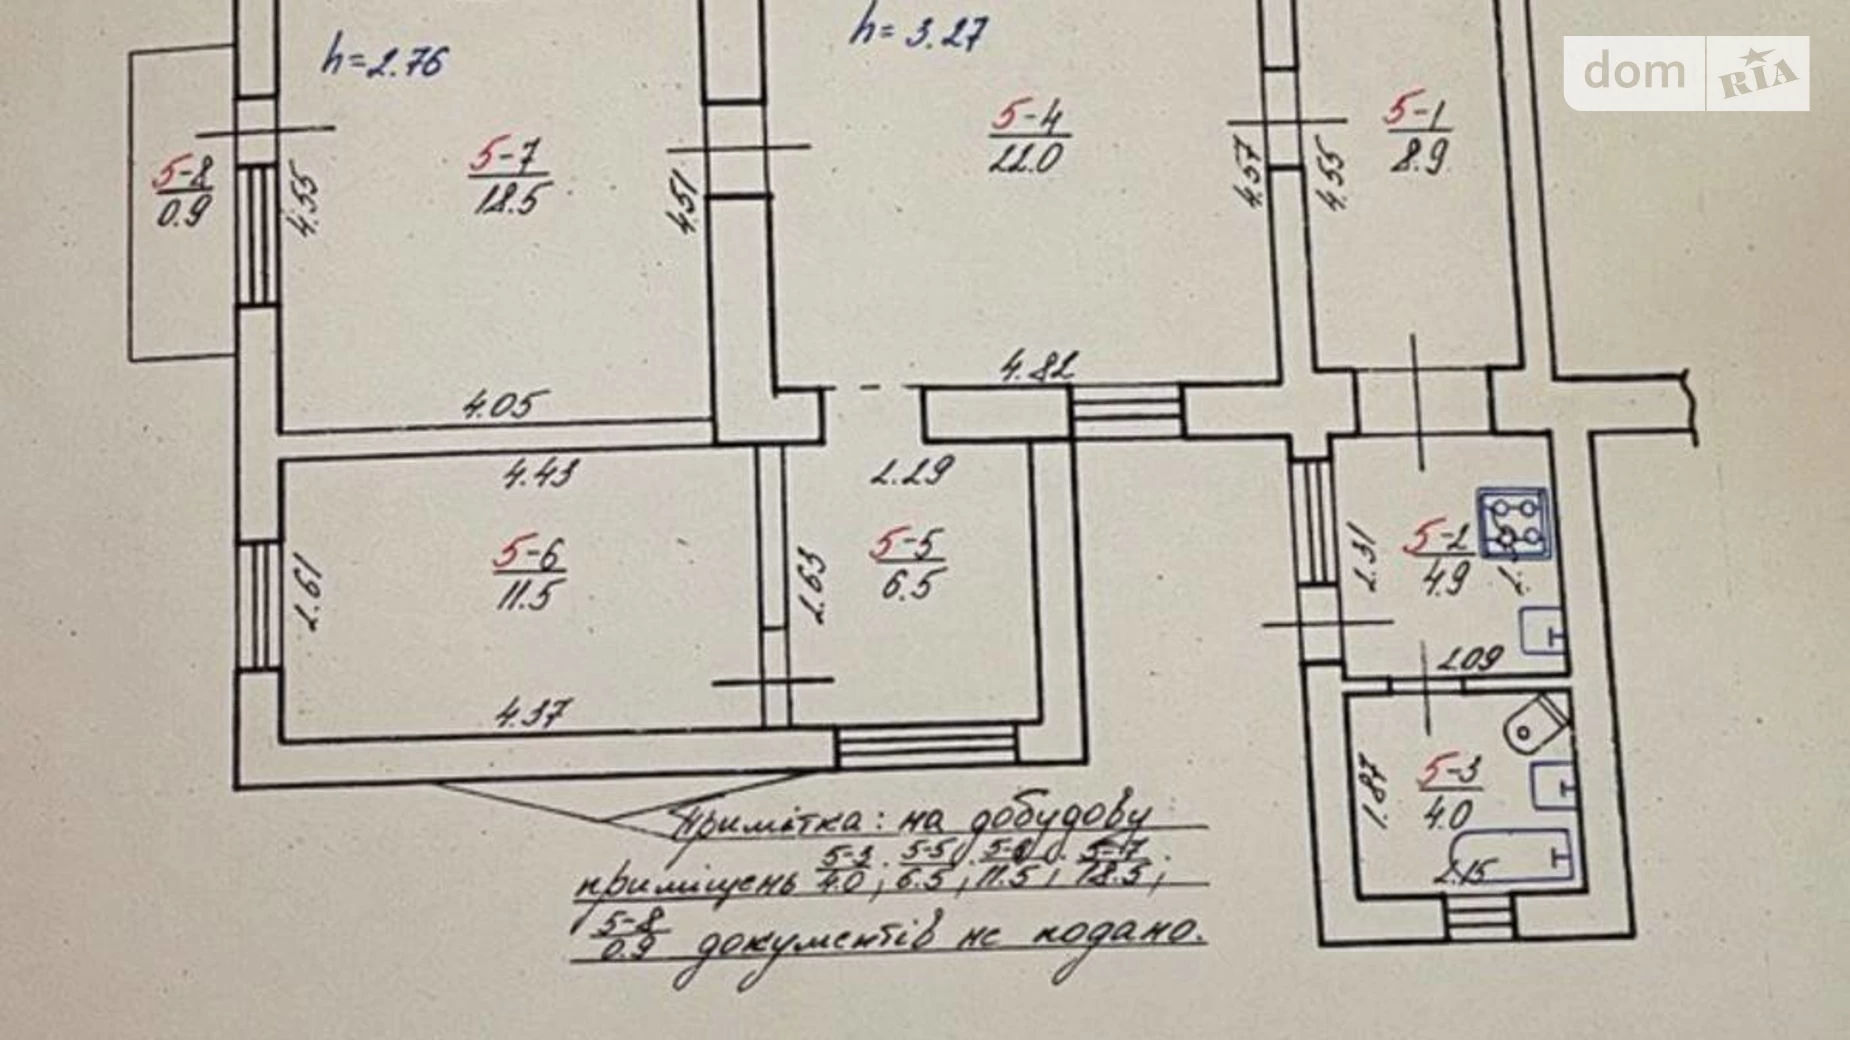 h=2.76
h=3.27
dom RIA
5-8
0.9
4.55
5-7
18.5
4.51
5-4
22.0
4.57
4.55
5-1
8.9
4.05
4.82
4.43
2.29
2.61
5-6
11.5
2.63
5-5
6.5
2.31
5-2
4.9
2.09
4.37
1.87
5-3
4.0
2.15
Примітка: на добудову
приміщень 5-3/4.0; 5-5/6.5; 5-6/11.5; 5-7/18.5;
5-8/0.9 документів не подано.